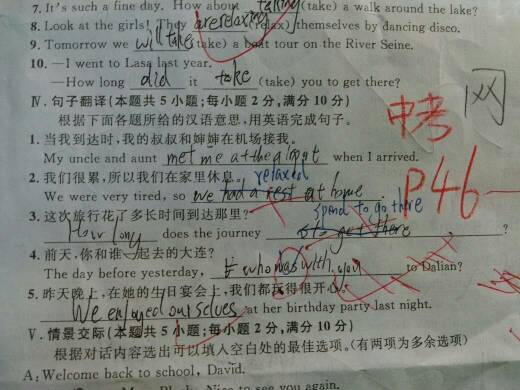 7. It's such a fine day. How about taking (take) a walk around the lake?
8. Look at the girls! They are relaxing (relax) themselves by dancing disco.
9. Tomorrow we will take (take) a boat tour on the River Seine.
10. —I went to Lasa last year.
—How long did it take (take) you to get there?
Ⅳ. 句子翻译(本题共 5 小题;每小题 2 分,满分 10 分)
根据下面各题所给的汉语意思,用英语完成句子。
中考 网
1. 当我到达时,我的叔叔和婶婶在机场接我。
My uncle and aunt met me at the airport when I arrived.
2. 我们很累,所以我们在家里休息。 relaxed
We were very tired, so we had a rest at home
P46
3. 这次旅行花了多长时间到达那里? spend to go there
How long does the journey to get there ?
4. 前天,你和谁一起去的大连?
The day before yesterday, who was with you to Dalian?
5. 昨天晚上,在她的生日宴会上,我们都玩得很开心。
We enjoyed ourselves at her birthday party last night.
Ⅴ. 情景交际(本题共 5 小题;每小题 2 分,满分 10 分)
根据对话内容选出可以填入空白处的最佳选项。(有两项为多余选项)
A: Welcome back to school, David.
Nice to see you again.